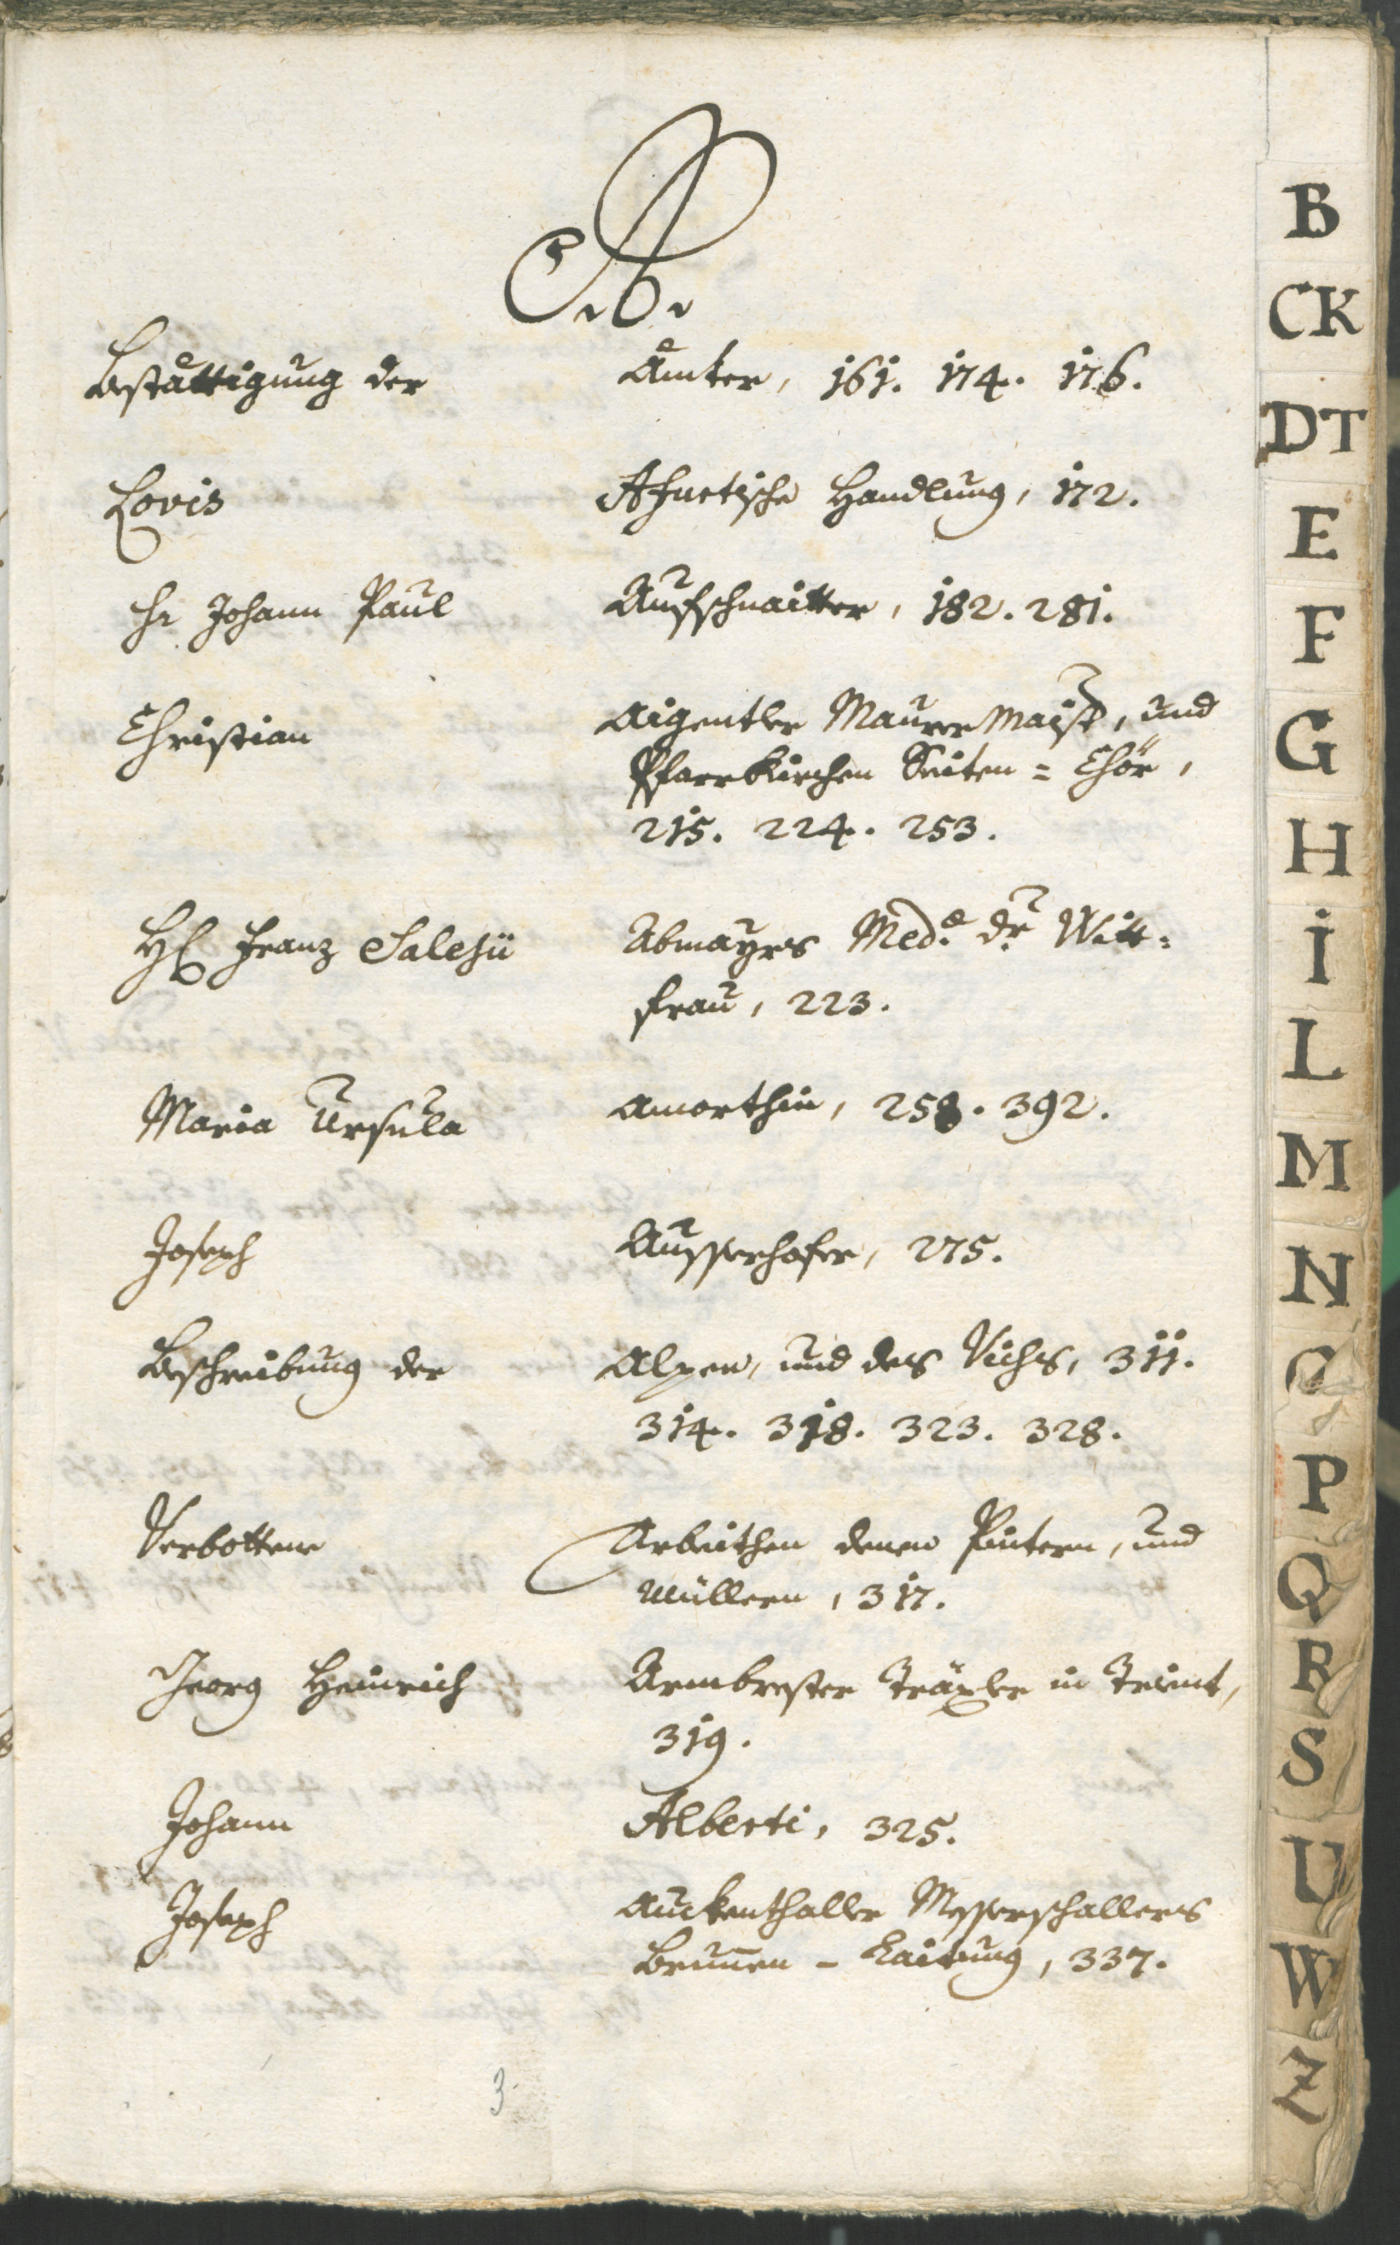 A.
Bestättigung der Ämter, 161. 174. 176.
Lovis Ahnetische Handlung, 172.
Hr Johann Paul Aufschnaitter, 182. 281.
Christian Aigentler Maurer Maister, und
Pfarrkirchen Seiten = Chör,
215. 224. 253.
H Franz Salesii Abmayrs Med.e dr Witt=
frau, 223.
Maria Ursula Amorthin, 258. 392.
Joseph Ausserhofer, 275.
Beschreibung der Alpen, und des Vichs, 311.
314. 318. 323. 328.
Verbottene Arbeithen denen Pintern, und
Müllern, 317.
Georg Heinrich Armbrester Träxler in Trint,
319.
Johann Alberti, 325.
Joseph Auckenthaller Messerschallers
Brunnen - Laitung, 337.
3
B
CK
DT
E
F
G
H
I
L
M
N
O
P
Q
R
S
U
W
Z